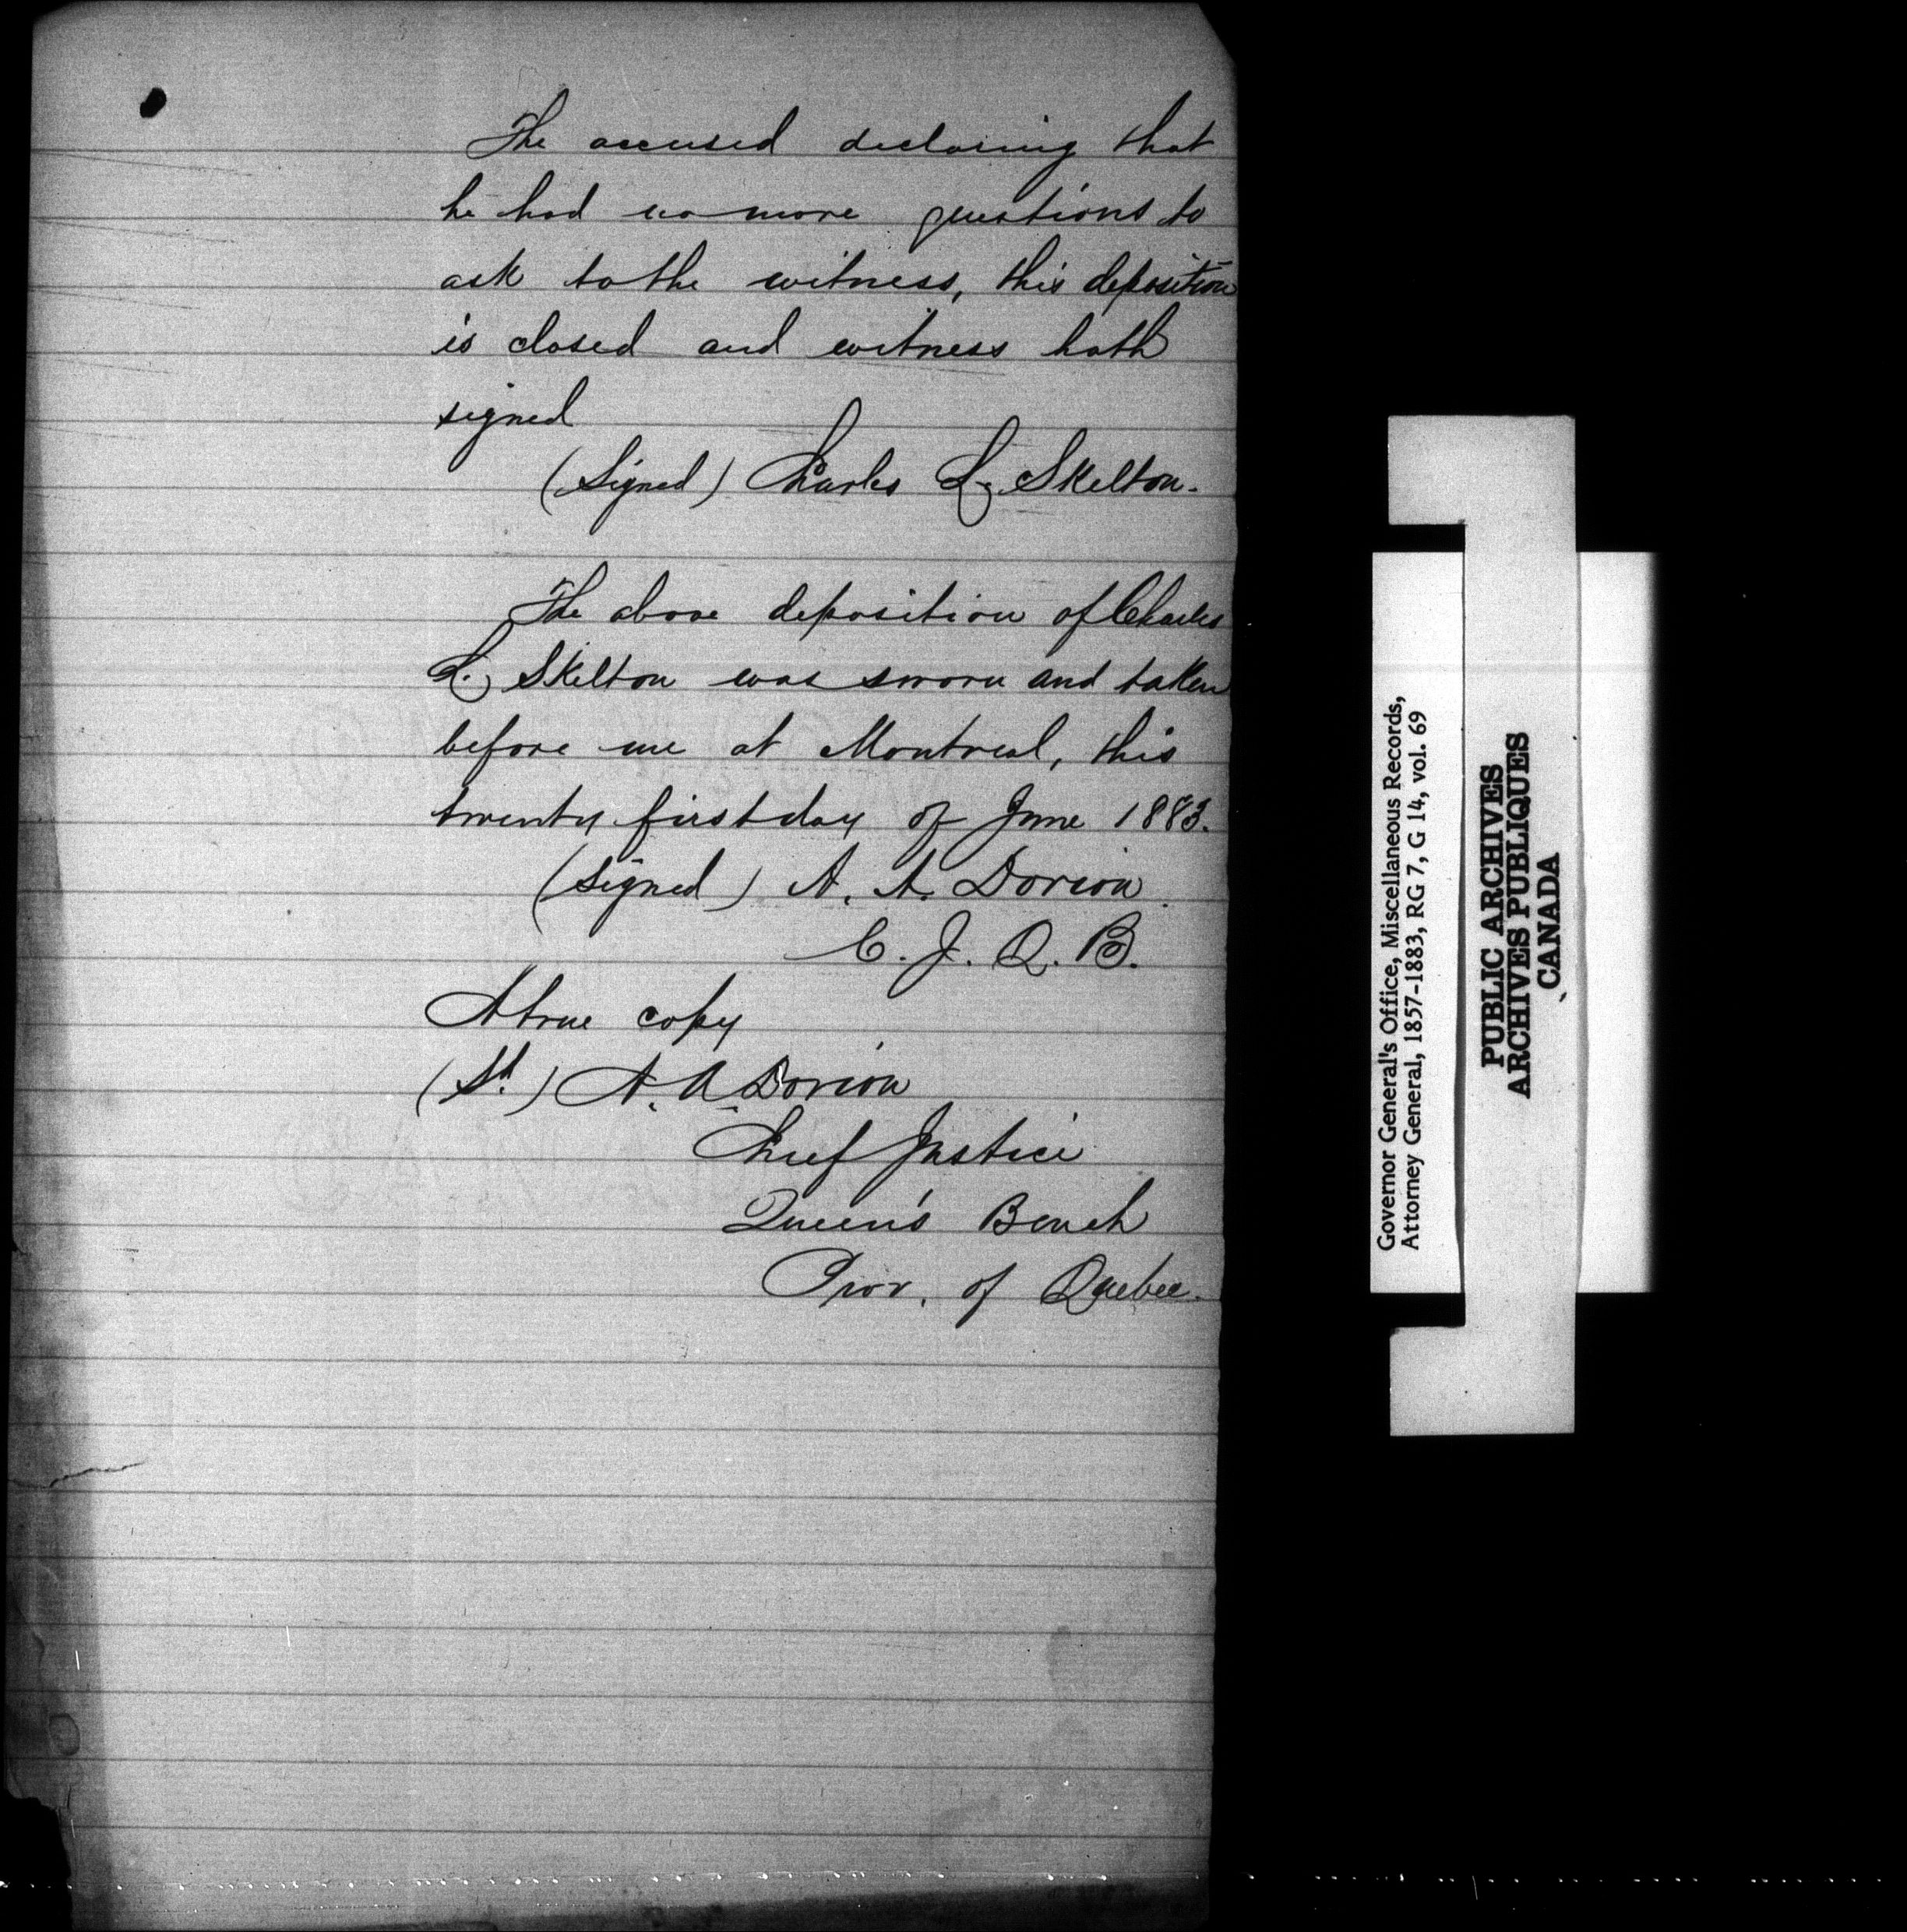 The accused declaring that
he had no more questions to
ask to the witness, this deposition
is closed and witness hath
signed
(Signed) Charles L. Skelton.
The above deposition of Charles
L. Skelton was sworn and taken
before me at Montreal, this
twenty first day of June 1883.
(Signed) A. A. Dorion.
C. J. Q. B.
A true copy
(Sd.) A. A. Dorion
Chief Justice
Queen's Bench
Prov. of Quebec.
Governor General's Office, Miscellaneous Records,
Attorney General, 1857-1883, RG 7, G 14, vol. 69
PUBLIC ARCHIVES
ARCHIVES PUBLIQUES
CANADA